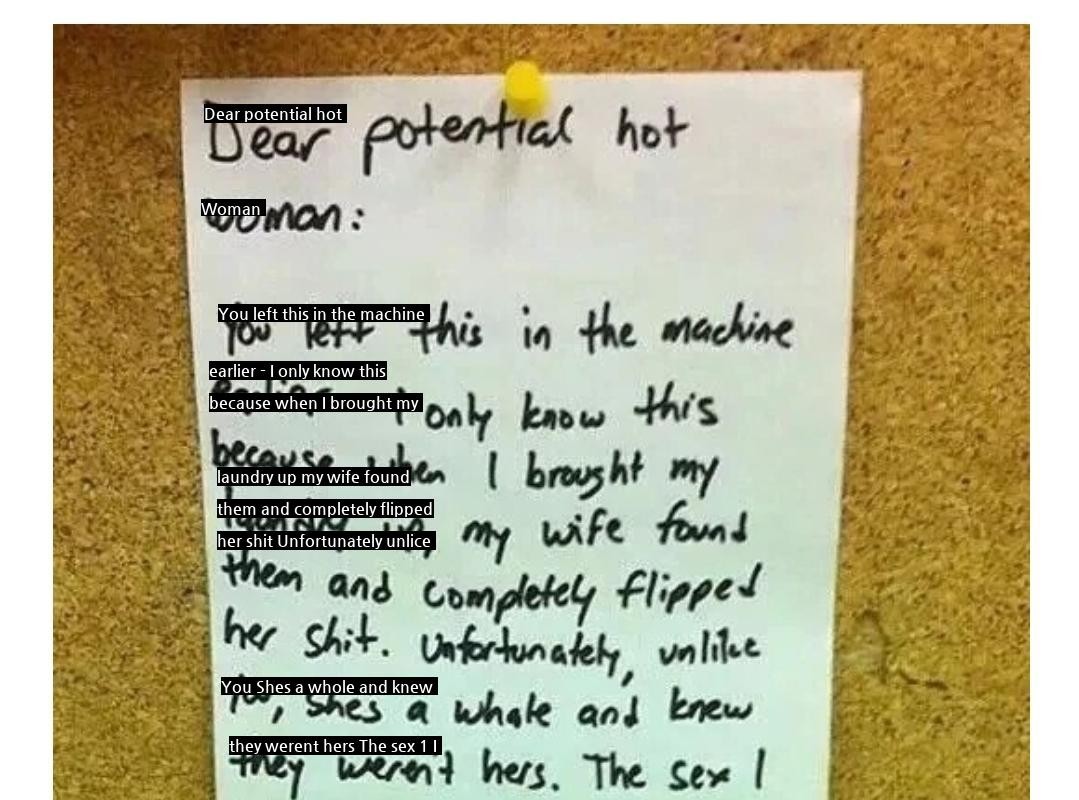 Dear potential hot
Dear potential hot
Woman
woman:
You left this in the machine
You left this in the machine
earlier - I only know this
because when I brought my
earlier I only know this
because when I brought my
laundry up my wife found
them and completely flipped
her shit Unfortunately unlice
laundry up, my wife found
them and completely flipped
her shit. Unfortunately, unlike
You Shes a whole and knew
You, Shes a whale and knew
they werent hers The sex 1 I
they werent hers. The sex I